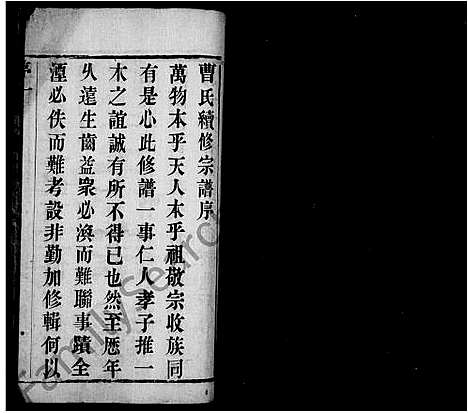 曹氏續修宗譜序
萬物本乎天人本乎祖敬宗收族同
有是心此修譜一事仁人孝子推一
木之誼誠有所不得已也然至歷年
久遠生齒益衆必渙而難聯事蹟全
湮必佚而難考設非勤加修輯何以
FamilySearch